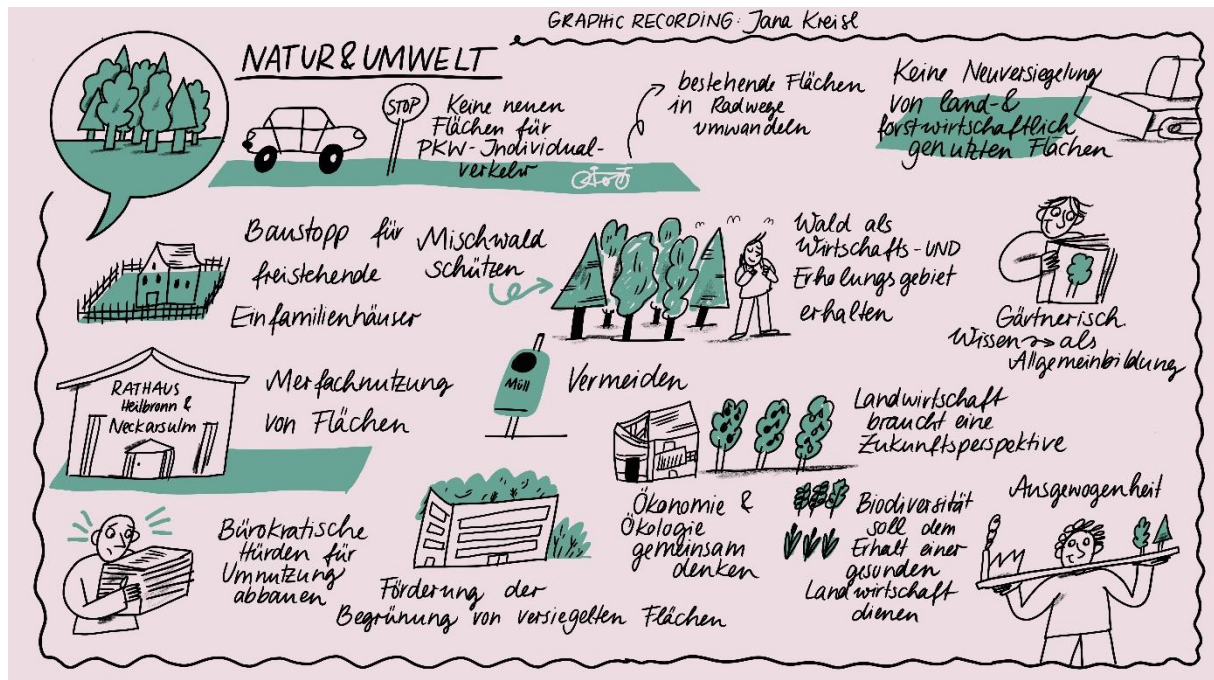 GRAPHIC RECORDING: Jana Kreisl
NATUR & UMWELT
STOP
Keine neuen
Flächen für
PKW-Individual-
verkehr
bestehende Flächen
in Radwege
umwandeln
Keine Neuversiegelung
von land-&
forstwirtschaftlich
genutzten Flächen
Baustopp für
freistehende
Einfamilienhäuser
Mischwald
schützen
Wald als
Wirtschafts-UND
Erholungsgebiet
erhalten
Gärtnerisch
Wissen als
Allgemeinbildung
RATHAUS
Heilbronn &
Neckarsulm
Merfachnutzung
von Flächen
Müll
Vermeiden
Landwirtschaft
braucht eine
Zukunftsperspektive
Bürokratische
Hürden für
Umnutzung
abbauen
Förderung der
Begrünung von versiegelten Flächen
Ökonomie &
Ökologie
gemeinsam
denken
Biodiversität
soll dem
Erhalt einer
gesunden
Landwirtschaft
dienen
Ausgewogenheit